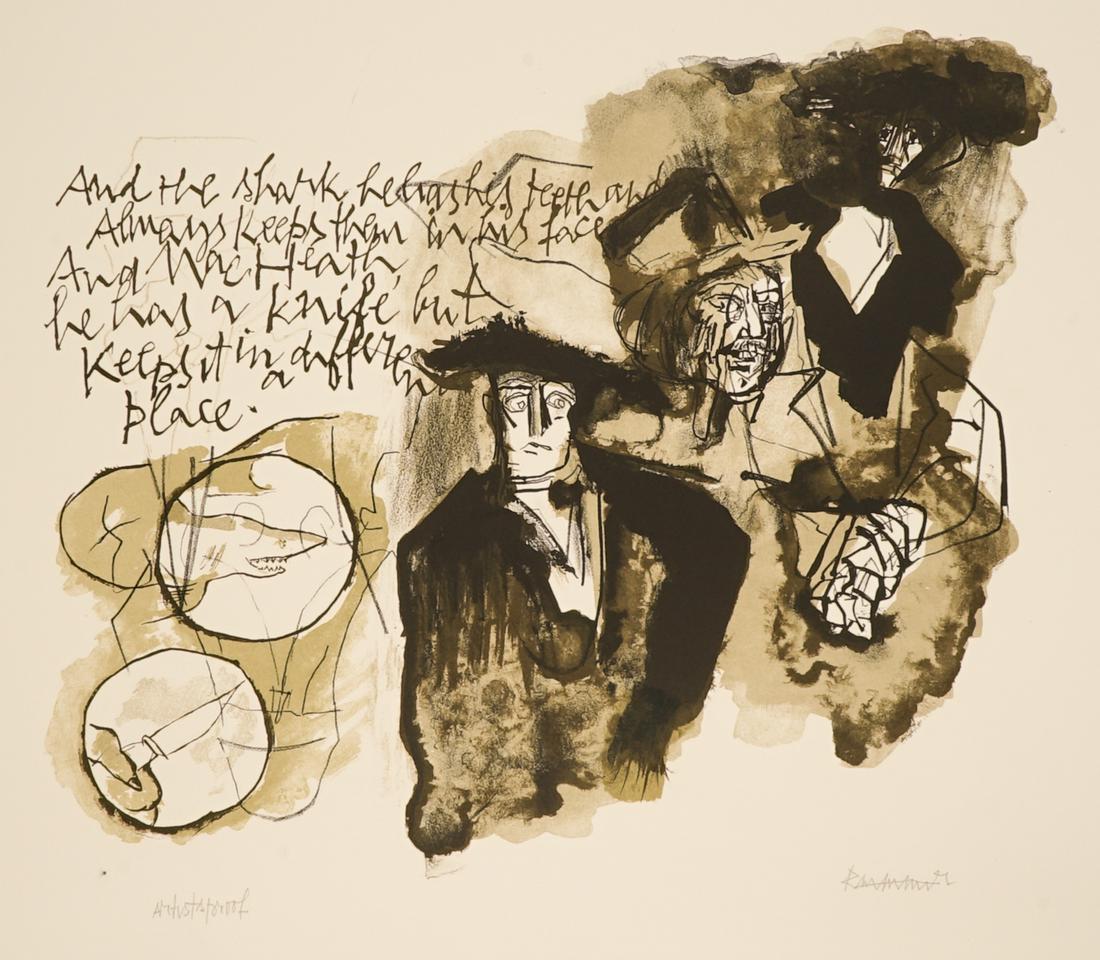 And the shark he has his teeth and
Always keeps them in his face
And MacHeath,
he has a knife but
keeps it in a differen
place.
artist's proof